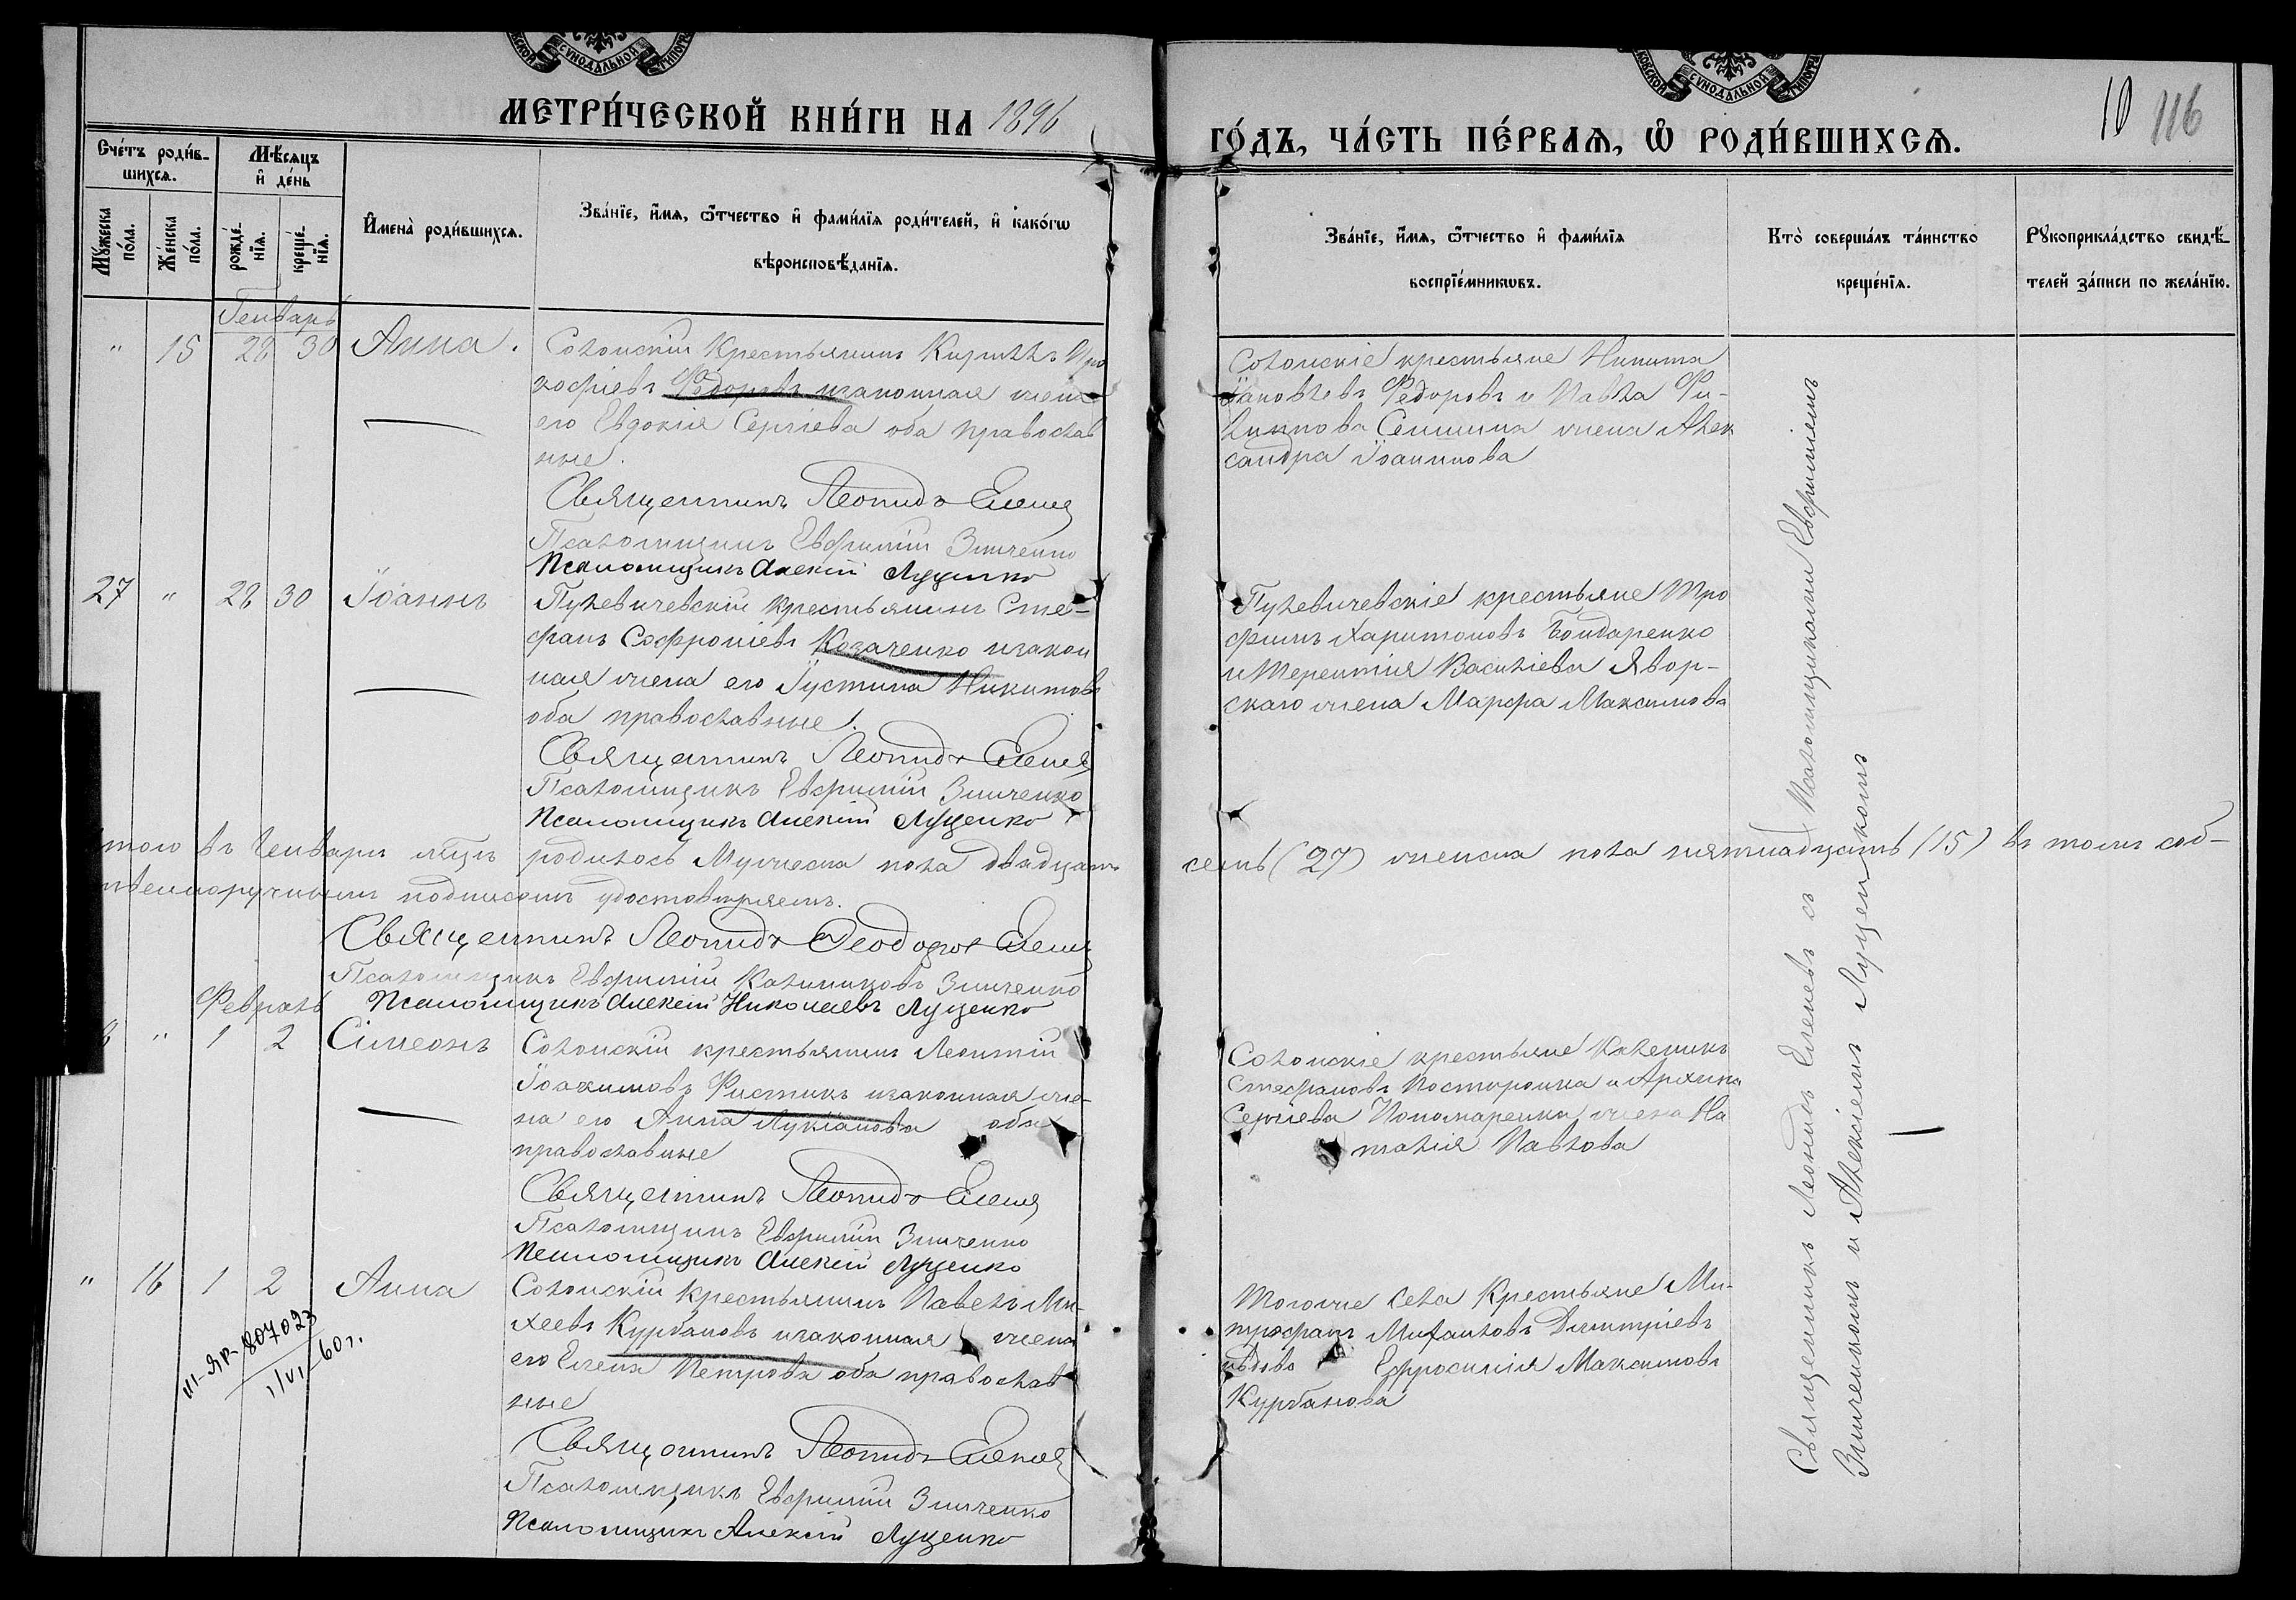 МЕТРИ́ЧЕСКОЙ КНИ́ГИ НА 1896
ГО́ДЪ, ЧА́СТЬ ПЕ́РВАѦ, Ѽ РОДИ́ВШИХСѦ.
10 116
Сче́тъ роди́в-
шихсѧ.
Мѣ́сѧцъ
и҆ де́нь
Мꙋ́жеска
по́ла.
Же́нска
по́ла.
рожде́-
нїѧ.
креще́-
нїѧ.
И҆мена̀ роди́вшихсѧ.
Зва́нїе, и҆́мѧ, ѻ҆́тчество и҆ фами́лїѧ роди́телей, и҆ како́гѡ
вѣроисповѣ́данїѧ.
Зва́нїе, и҆́мѧ, ѻ҆́тчество и҆ фами́лїѧ
воспрїе́мникѡвъ.
Кто̀ соверша́лъ та́инство
креще́нїѧ.
Рꙋкоприкла́дство свидѣ́-
телей за́писи по жела́нїю.
Генварь
" 15 28 30 Анна.
Солонскій Крестьянинъ Кириллъ Про
кофіевъ Федоровъ изаконная жена
его Евдокія Сергіева оба православ
ные.
Священникъ Леонидъ Еленев
Псаломщикъ Евфимій Зинченко
Псаломщикъ Алексій Луценко
Солонскіе крестьяне Никита
Іаковлевъ Федоровъ и Павла Фи-
липпова жена Алек
сандра Іоаннова
27 " 28 30 Іоаннъ
Пулевичевскій Крестьянинъ Сте-
фанъ Софроніевъ Козаченко изакон
ная жена его Іустина Никитова
оба православные.
Священникъ Леонидъ Еленев
Псаломщикъ Евфимій Зинченко
Псаломщикъ Алексій Луценко
Пулевичевскіе крестьяне Тро
фимъ Харитоновъ Бондаренко
и Терентія Василіева Явор-
скаго жена Марфа Максимова
того въ Генварѣ мѣсцѣ родилось Мужеска пола двадцать
семь (27) женска пола пятнадцать (15) въ томъ соб-
ственноручнымъ подписомъ удостовѣряемъ.
Священникъ Леонидъ Феодоровъ Еленев
Псаломщикъ Евфимій Калинниковъ Зинченко
Псаломщикъ Алексій Николаевъ Луценко
Февраль
" 1 2 Сімеонъ
Солонскій крестьянинъ Леонтій
Іоакимовъ Фистикъ изаконная же-
на его Анна Лукіанова оба
православные
Священникъ Леонидъ Еленев
Псаломщикъ Евфимій Зинченко
Псаломщикъ Алексій Луценко
Солонскіе крестьяне Каленикъ
Стефановъ Постиронка и Архипа
Сергіева Пономаренка жена На
талія Павлова
" 16 1 2 Анна
Солонскій Крестьянинъ Павелъ Ми-
хеевъ Курбановъ изаконная жена
его Елена Петрова оба православ
ные
Священникъ Леонидъ Еленев
Псаломщикъ Евфимій Зинченко
Псаломщикъ Алексій Луценко
Тогоже Села Крестьяне Ми-
трофанъ Михаиловъ Димитріевъ
ивдова Ефросинія Максимова
Курбанова
III-ЯР-807023
1/VI-60г.
Священникъ Леонидъ Еленевъ съ Псаломщиками Евфиміемъ
Зинченкомъ и Алексіемъ Луценкомъ